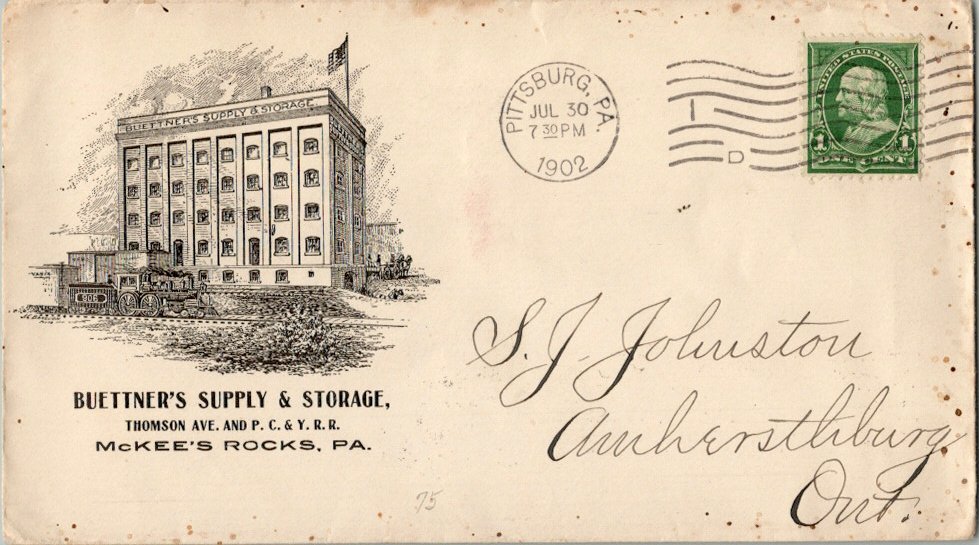 BUETTNER'S SUPPLY & STORAGE
906
BUETTNER'S SUPPLY & STORAGE,
THOMSON AVE. AND P. C. & Y. R. R.
McKEE'S ROCKS, PA.
PITTSBURG, PA.
JUL 30
7 30 PM
1902
1
D
UNITED STATES POSTAGE
1 1
ONE CENT
S. J. Johnston
Amherstbburg
Ont.
75